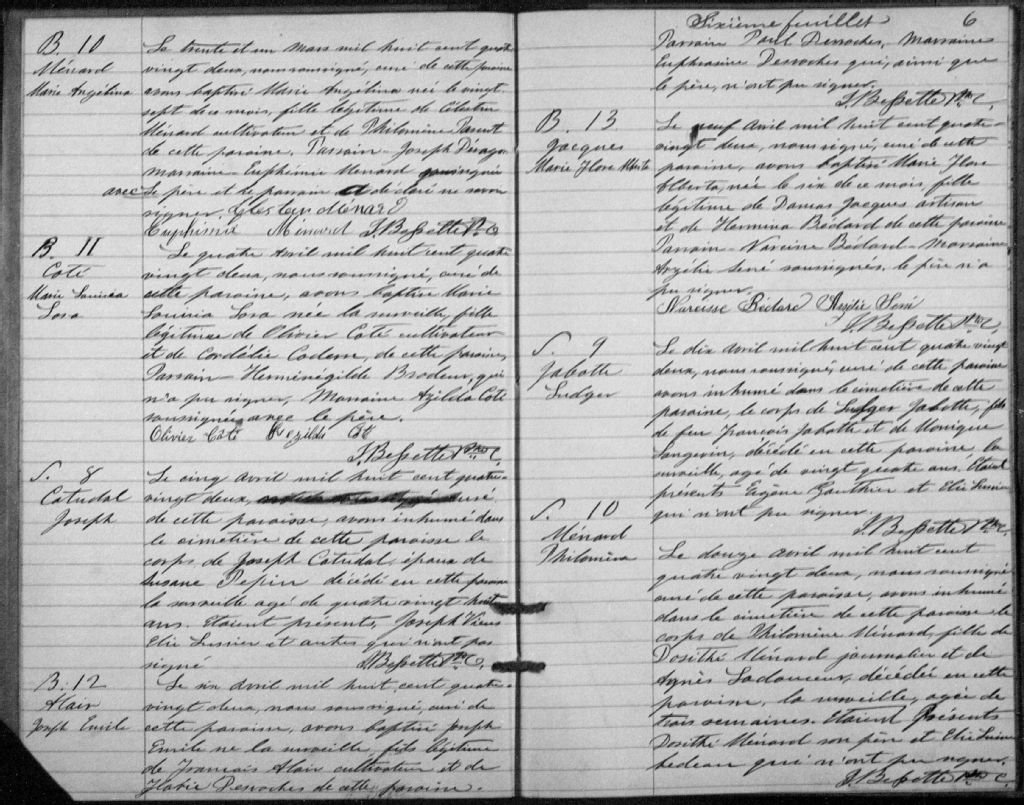 B. 10
Ménard
Marie Angélina
Le trente et un Mars mil huit cent quatre
vingt deux, nous soussigné, curé de cette paroisse
avons baptisé Marie Angelina née le vingt
sept de ce mois, fille légitime de Célestin
Ménard cultivateur et de Philomène
de cette paroisse, Parrain - Joseph
marraine - Euphémie Menard
avec le père et le parrain a déclaré ne savoir
signer. Célestin Ménard
Euphémie Ménard J. Bessette Ptre C.
B. 11
Coté
Marie Louisia
Lora
Le quatre Avril mil huit cent quatre
vingt deux, nous soussigné, curé de
cette paroisse, avons baptisé Marie
Louisia Lora née la surveille, fille
légitime de Olivier Coté cultivateur
et de Cordélie Coderre, de cette paroisse,
Parrain - Herménégilde Brodeur, qui
n'a pu signer, Marraine Azilda Coté
soussignée avec le père.
Olivier Coté Rezilda Coté
J. Bessette Ptre C.
S. 8
Catudal
Joseph
Le cinq avril mil huit cent quatre-
vingt deux, curé
de cette paroisse, avons inhumé dans
le cimetière de cette paroisse le
corps de Joseph Catudal, époux de
Susane Pepin décédé en cette paroisse
la surveille agé de quatre vingt huit
ans. Etaient présents, Joseph Viens
Elie Lussier et autres qui n'ont pas
signé J. Bessette Ptre C.
B. 12
Alair
Joseph Emile
Le six Avril mil huit cent quatre-
vingt deux, nous soussigné, curé de
cette paroisse, avons baptisé Joseph
Emile né la surveille, fils légitime
de Francois Alair cultivateur et de
Flavie Desroches de cette paroisse.
Sixième feuillet 6
Parrain Paul Desroches, Marraine
Euphrasine Desroches qui, ainsi que
le père, n'ont pu signer.
J. Bessette Ptre C.
B. 13
Jacques
Marie Flore Alberta
Le neuf Avril mil huit cent quatre-
vingt deux, nous signé, curé de cette
paroisse, avons baptisé Marie Flore
Alberta, née le six de ce mois, fille
légitime de Damas Jacques artisan
et de Hermina Bédard de cette paroisse
Parrain - Narcisse Bédard - Marraine
Azélie Sené soussignés, le père n'a
pu signer.
Narcisse Bédard Azélie Sené
J. Bessette Ptre C.
S. 9
Jabotte
Ludger
Le dix Avril mil huit cent quatre vingt
deux, nous soussigné, curé de cette paroisse
avons inhumé dans le cimetière de cette
paroisse, le corps de Ludger Jabotte, fils
de feu Francois Jabotte et de Monique
Langevin, décédé en cette paroisse, la
surveille, agé de vingt quatre ans. Etaient
présents Eugène Gauthier et Elie Lussier
qui n'ont pu signer.
J. Bessette Ptre C.
S. 10
Ménard
Philomène
Le douze Avril mil huit cent
quatre vingt deux, nous soussigné
curé de cette paroisse, avons inhumé
dans le cimetière de cette paroisse le
corps de Philomène Ménard, fille de
Dosithé Ménard journalier et de
Agnès Ladouceur, décédée en cette
paroisse, la surveille, agée de
trois semaines. Etaient présents
Dosithé Ménard son père et Elie Lussier
bedeau qui n'ont pu signer.
J. Bessette Ptre C.